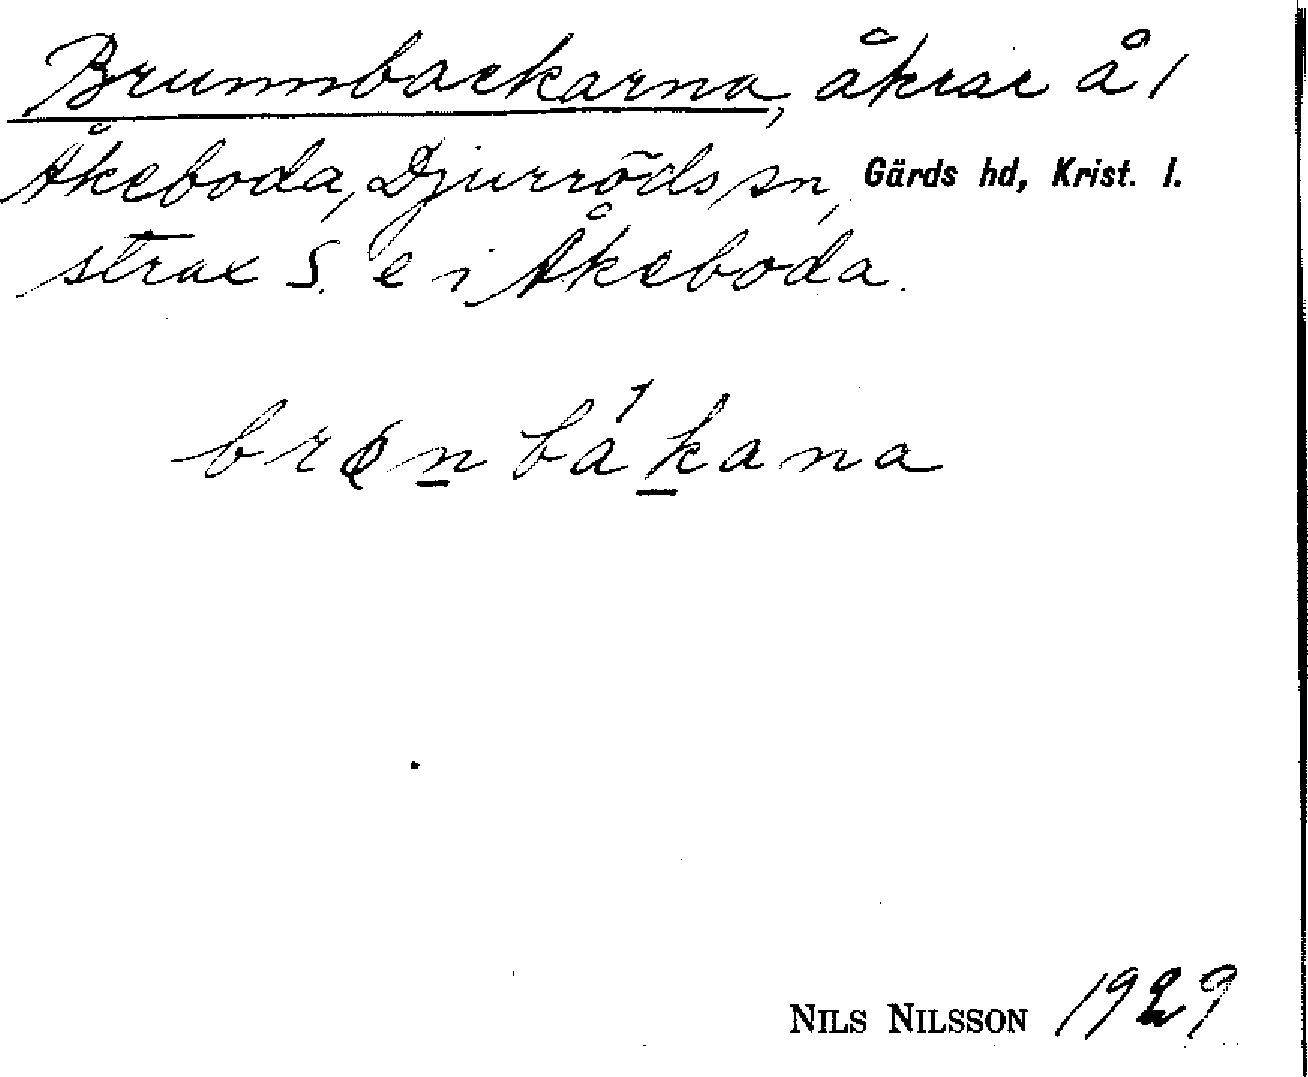 Brunnbackarna, åkrar å 1
Åkeboda, Djurröds sn, Gärds hd, Krist. l.
strax S. e i Åkeboda.
brønbákana
NILS NILSSON 1929